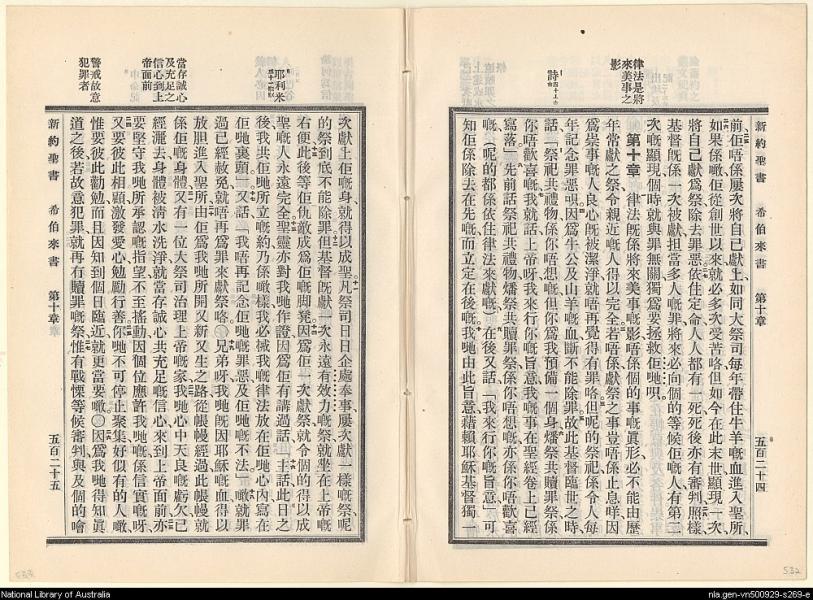 新約聖書 希伯來書 第十章 五百二十四
前佢唔係屢次將自己獻上如同大祭司每年帶住牛羊嘅血進入聖所、
如果係噉佢從創世以來就必多次受苦咯但如今在此末世顯現一次、
將自己獻爲祭除去罪惡依住定命人人都有一死死後亦有審判照樣
基督旣係一次被獻担當多人嘅罪將來必向個的等候佢嘅人有第二
次嘅顯現個時就與罪無關獨爲要拯救佢哋唄。
第十章 律法旣係將來美事嘅影唔係個的事嘅眞形必不能由歷
年常獻之祭令親近嘅人得以完全若唔係獻祭之事豈唔係止息咩因
爲崇事嘅人良心旣被潔淨就唔再覺得有罪咯但呢的祭祀係令人每
年記念罪惡唄因爲牛公及山羊嘅血斷不能除罪故此基督臨世之時
話「祭祀共禮物係你唔想嘅但你爲我預備一個身燔祭共贖罪祭係
你唔歡喜嘅我就話上帝呀我來行你嘅旨意我嘅事在聖經卷上已經
寫落」先前話祭祀共禮物燔祭共贖罪祭係你唔想嘅亦係你唔歡喜
嘅、(呢的都係依住律法來獻嘅)在後又話「我來行你嘅旨意」可
知佢係除去在先嘅而立定在後嘅我哋由此旨意藉賴耶穌基督獨一
律法是將
來美事之
影
詩
次獻上佢嘅身就得以成聖凡祭司日日企處奉事屢次獻一樣嘅祭呢
的祭到底不能除罪但基督旣獻一次永遠有效力嘅祭就坐在上帝嘅
右便此後等佢仇敵成爲佢嘅脚凳因爲佢一次獻祭就令個的得以成
聖嘅人永遠完全聖靈亦對我哋作證因爲佢有講過話「主話此日之
後我共佢哋所立嘅約乃係噉樣我必滅我嘅律法放在佢哋心內寫在
佢哋裏頭」又話「我唔再記念佢哋嘅罪惡及佢哋嘅不法」噉就罪
過已經赦免就唔再爲罪來獻祭咯○兄弟呀我哋旣因耶穌嘅血得以
放胆進入聖所由佢爲我哋所開又新又生之路從帳幔經過此帳幔就
係佢嘅身體又有一位大祭司治理上帝嘅家我哋心中天良嘅虧欠已
經灑去身體被淸水洗淨就當存誠心共充足嘅信心來到上帝面前亦
要堅守我哋所承認嘅指望不至搖動因個位應許我哋嘅係信實嘅呀
又要彼此相顧激發愛心勉勵行善你哋不可停止聚集好似有的人噉
惟要彼此勸勉而且因知到個日臨近就更當要噉○因爲我哋得知眞
道之後若故意犯罪就再有贖罪嘅祭惟有戰慄等候審判與及個的噲
新約聖書 希伯來書 第十章 五百二十五
耶利米
當存誠心
及充足之
信心到主
帝面前
警戒故意
犯罪者
532
533
National Library of Australia
nla.gen-vn500929-s269-e